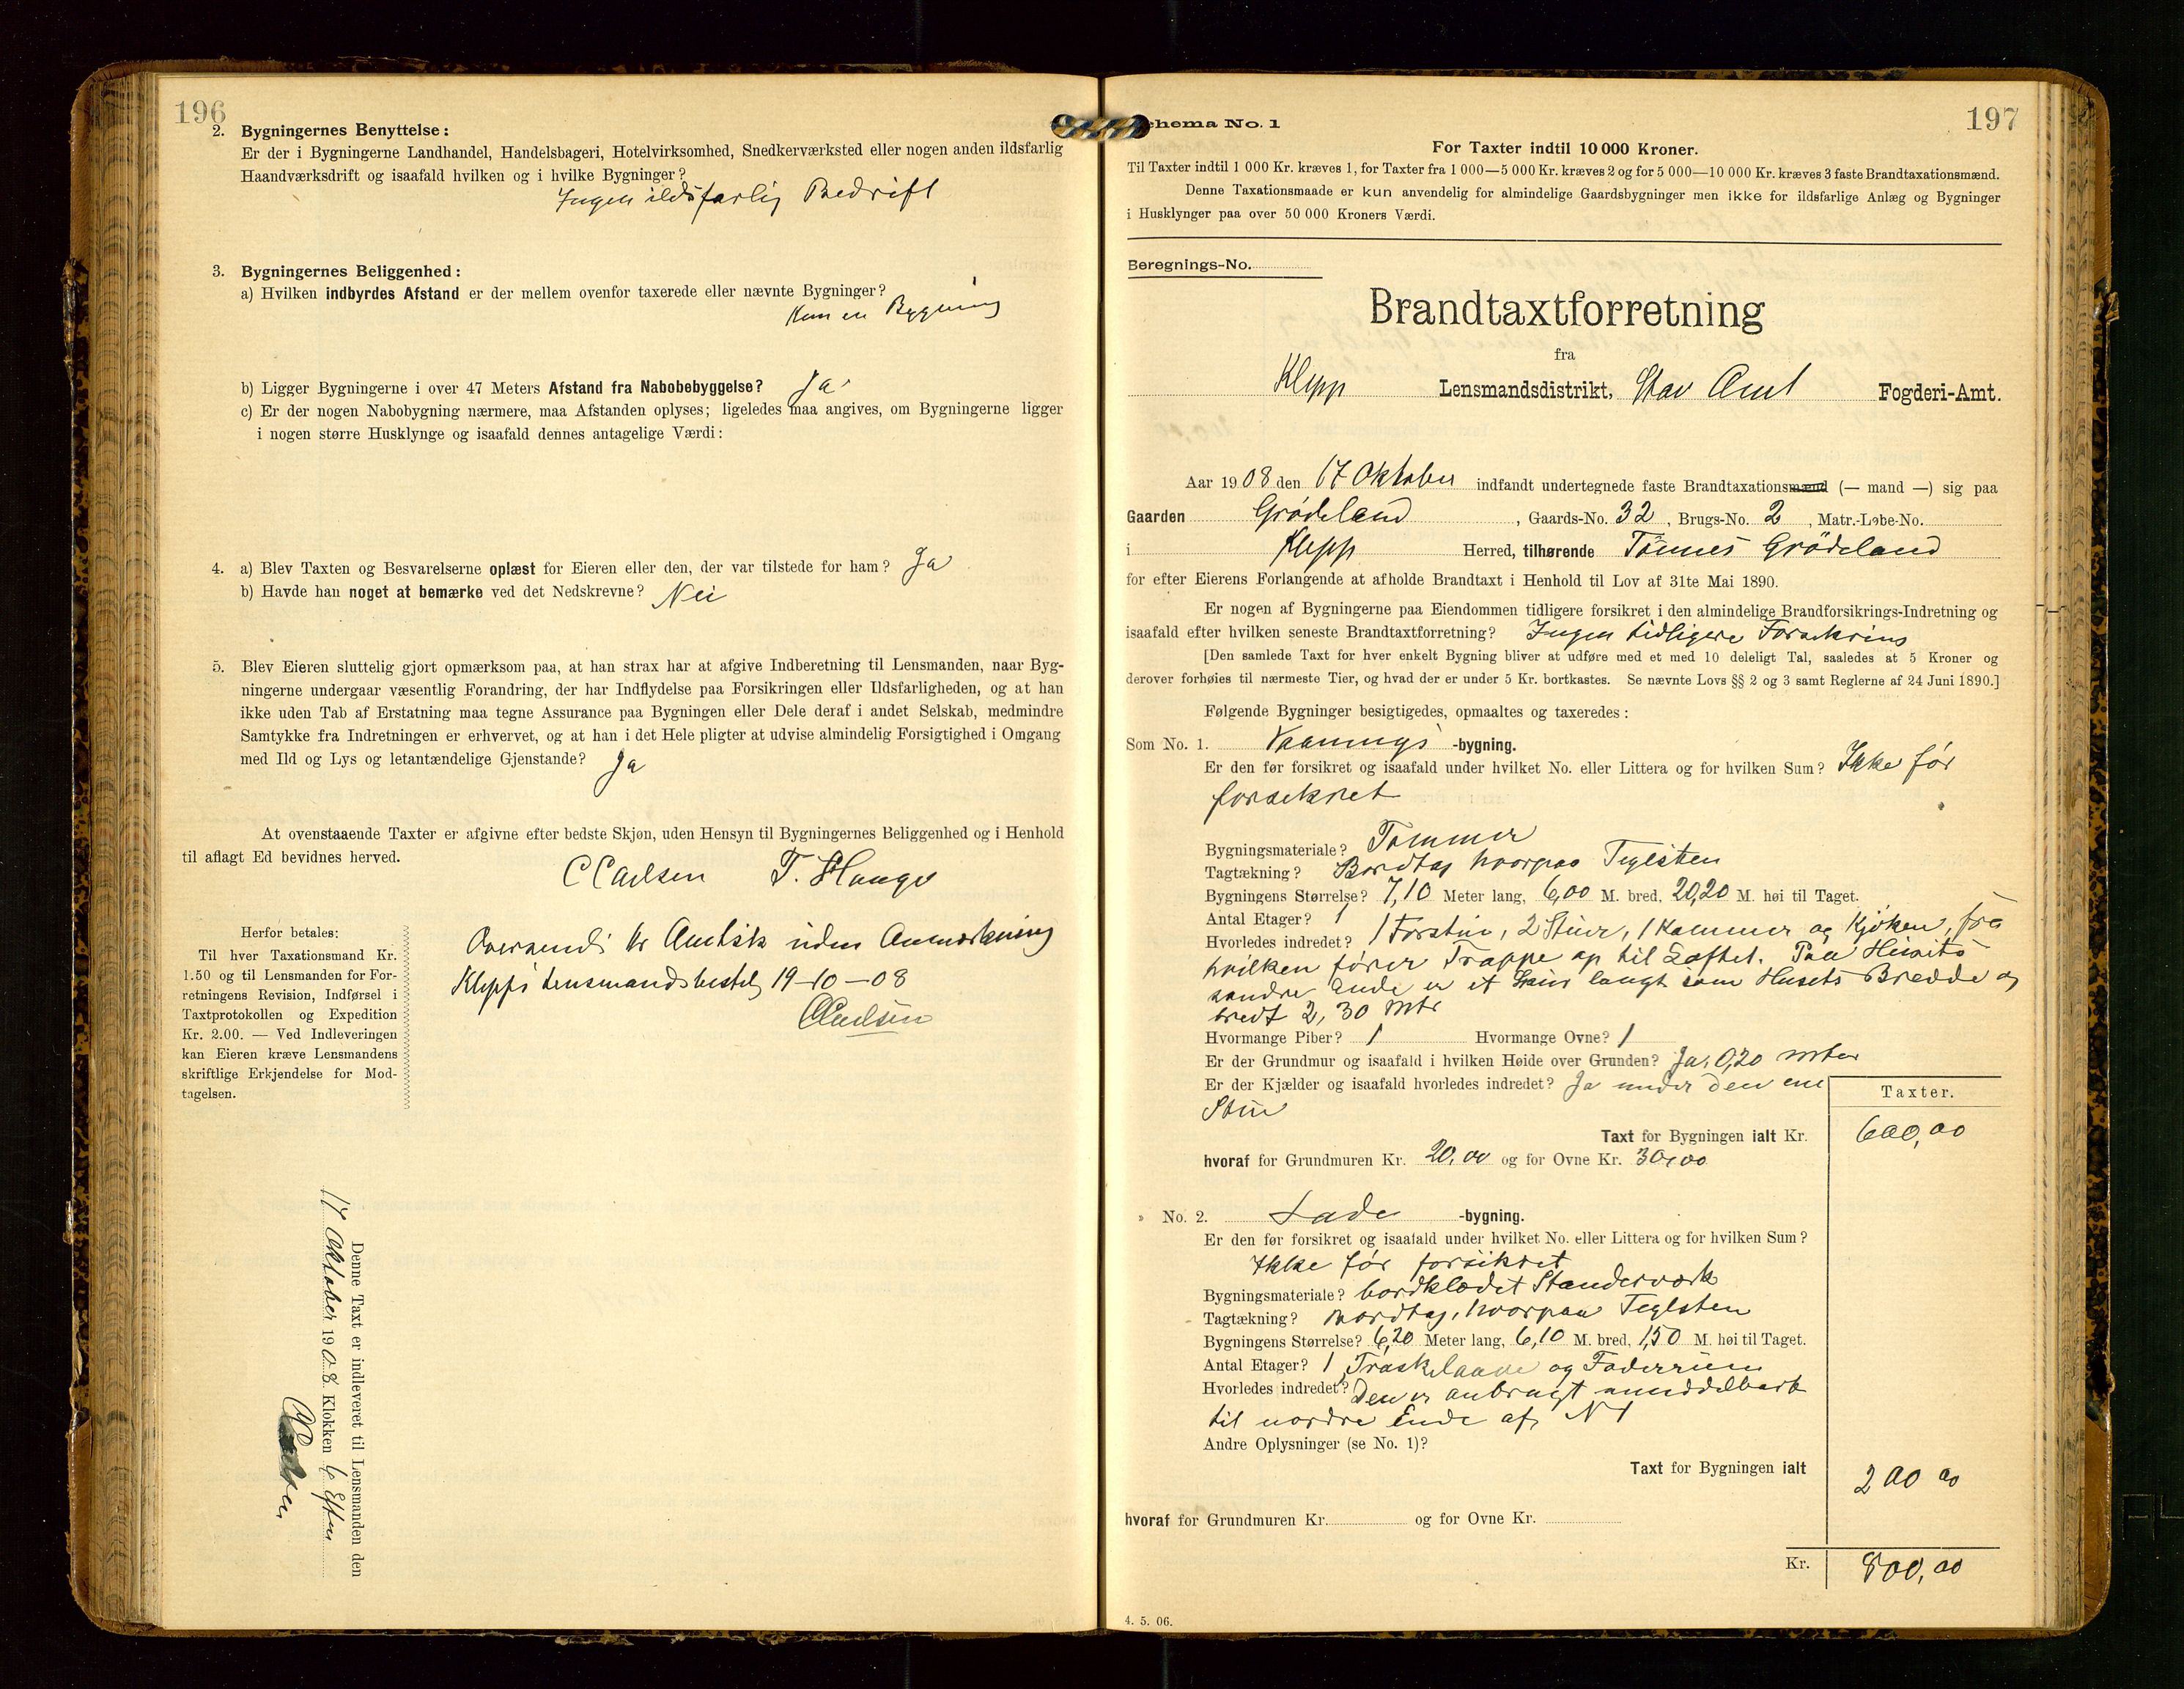 196
2. Bygningernes Benyttelse:
Er der i Bygningerne Landhandel, Handelsbageri, Hotelvirksomhed, Snedkerværksted eller nogen anden ildsfarlig
Haandværksdrift og isaafald hvilken og i hvilke Bygninger?
Ingen ildsfarlig Bedrift
3. Bygningernes Beliggenhed:
a) Hvilken indbyrdes Afstand er der mellem ovenfor taxerede eller nævnte Bygninger?
Kun en Bygning
b) Ligger Bygningerne i over 47 Meters Afstand fra Nabobebyggelse? Ja
c) Er der nogen Nabobygning nærmere, maa Afstanden oplyses; ligeledes maa angives, om Bygningerne ligger
i nogen større Husklynge og isaafald dennes antagelige Værdi:
4. a) Blev Taxten og Besvarelserne oplæst for Eieren eller den, der var tilstede for ham? Ja
b) Havde han noget at bemærke ved det Nedskrevne? Nei
5. Blev Eieren sluttelig gjort opmærksom paa, at han strax har at afgive Indberetning til Lensmanden, naar Byg-
ningerne undergaar væsentlig Forandring, der har Indflydelse paa Forsikringen eller Ildsfarligheden, og at han
ikke uden Tab af Erstatning maa tegne Assurance paa Bygningen eller Dele deraf i andet Selskab, medmindre
Samtykke fra Indretningen er erhvervet, og at han i det Hele pligter at udvise almindelig Forsigtighed i Omgang
med Ild og Lys og letantændelige Gjenstande? Ja
At ovenstaaende Taxter er afgivne efter bedste Skjøn, uden Hensyn til Bygningernes Beliggenhed og i Henhold
til aflagt Ed bevidnes herved.
C Carlsen T. Hauge
Herfor betales:
Til hver Taxationsmand Kr.
1.50 og til Lensmanden for For-
retningens Revision, Indførsel i
Taxtprotokollen og Expedition
Kr. 2.00. — Ved Indleveringen
kan Eieren kræve Lensmandens
skriftlige Erkjendelse for Mod-
tagelsen.
Oversendes Hr Amtsk uden Anmærkning
Klepps Lensmandsbestg 19-10-08
C Carlsen
Denne Taxt er indleveret til Lensmanden den
17 Oktober 1908 Klokken 6 Eftm
C Carlsen
197
chema No. 1
For Taxter indtil 10 000 Kroner.
Til Taxter indtil 1 000 Kr. kræves 1, for Taxter fra 1 000—5 000 Kr. kræves 2 og for 5 000—10 000 Kr. kræves 3 faste Brandtaxationsmænd.
Denne Taxationsmaade er kun anvendelig for almindelige Gaardsbygninger men ikke for ildsfarlige Anlæg og Bygninger
i Husklynger paa over 50 000 Kroners Værdi.
Beregnings-No.
Brandtaxtforretning
fra
Klepp Lensmandsdistrikt, Stav Amt Fogderi-Amt.
Aar 1908 den 17 Oktober indfandt undertegnede faste Brandtaxationsmænd (— mand —) sig paa
Gaarden Grødeland, Gaards-No. 32, Brugs-No. 2, Matr.-Løbe-No.
i Klepp Herred, tilhørende Tønnes Grødeland
for efter Eierens Forlangende at afholde Brandtaxt i Henhold til Lov af 31te Mai 1890.
Er nogen af Bygningerne paa Eiendommen tidligere forsikret i den almindelige Brandforsikrings-Indretning og
isaafald efter hvilken seneste Brandtaxtforretning? Ingen tidligere Forsikring
[Den samlede Taxt for hver enkelt Bygning bliver at udføre med et med 10 deleligt Tal, saaledes at 5 Kroner og
derover forhøies til nærmeste Tier, og hvad der er under 5 Kr. bortkastes. Se nævnte Lovs §§ 2 og 3 samt Reglerne af 24 Juni 1890.]
Følgende Bygninger besigtigedes, opmaaltes og taxeredes:
Som No. 1. Vaanings -bygning.
Er den før forsikret og isaafald under hvilket No. eller Littera og for hvilken Sum? Ikke før
forsikret
Bygningsmateriale? Tømmer
Tagtækning? Bordtag hvorpaa Teglsten
Bygningens Størrelse? 7,10 Meter lang, 6,00 M. bred, 20,20 M. høi til Taget.
Antal Etager? 1
Hvorledes indredet? 1 Forstue, 2 Stuer, 1 Kammer og Kjøken, fra
hvilken fører Trappe op til Loftet. Paa Husets
søndre Ende er et Skur langt som Husets Bredde og
bredt 2,30 Mtr
Hvormange Piber? 1 Hvormange Ovne? 1
Er der Grundmur og isaafald i hvilken Høide over Grunden? Ja, 0,20 mter
Er der Kjælder og isaafald hvorledes indredet? Ja under den ene
Stue
Taxter.
Taxt for Bygningen ialt Kr. 600,00
hvoraf for Grundmuren Kr. 20,00 og for Ovne Kr. 30,00
No. 2. Lade -bygning.
Er den før forsikret og isaafald under hvilket No. eller Littera og for hvilken Sum?
Ikke før forsikret
Bygningsmateriale? bordklædet Stenderværk
Tagtækning? Bordtag, hvorpaa Teglsten
Bygningens Størrelse? 6,20 Meter lang, 6,10 M. bred, 1,50 M. høi til Taget.
Antal Etager? 1 Træskelaave og Foderrum
Hvorledes indredet? Den er anbragt umiddelbart
til nordre Ende af N 1
Andre Oplysninger (se No. 1)?
Taxt for Bygningen ialt 200 00
hvoraf for Grundmuren Kr. og for Ovne Kr.
Kr. 800,00
4. 5. 06.